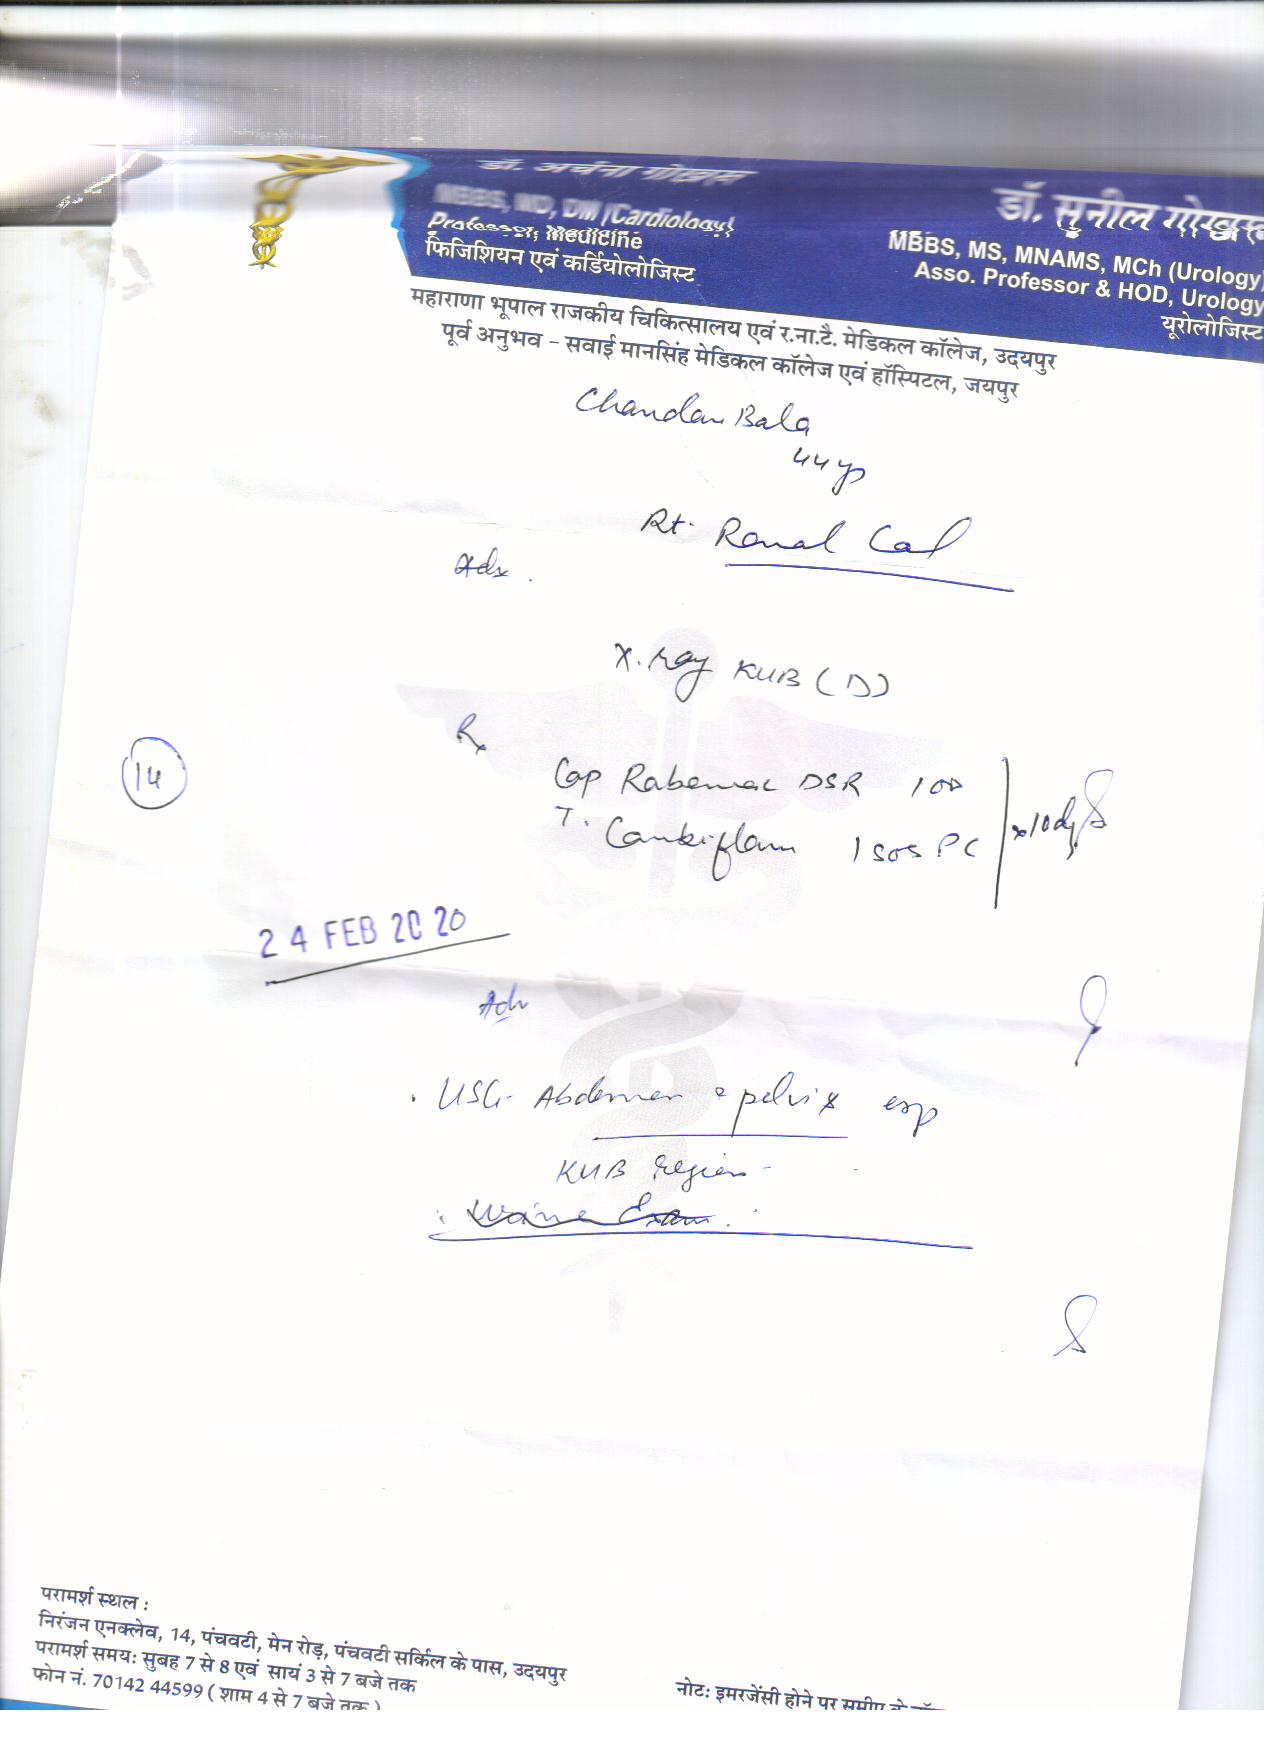 डॉ. अर्चना गोखरू
MBBS, MD, DM (Cardiology)
Professor, Medicine
फिजिशियन एवं कर्डियोलोजिस्ट
डॉ. सुनील गोखरू
MBBS, MS, MNAMS, MCh (Urology)
Asso. Professor & HOD, Urology
यूरोलोजिस्ट
महाराणा भूपाल राजकीय चिकित्सालय एवं र.ना.टै. मेडिकल कॉलेज, उदयपुर
पूर्व अनुभव – सवाई मानसिंह मेडिकल कॉलेज एवं हॉस्पिटल, जयपुर
Chandan Bala
44 yr
Rt. Renal Cal
Adv.
X.ray KUB (D)
Rx
14
Cap Rabemac DSR 1 OD
T. 1 SOS PC
x10dy
24 FEB 2020
Adv
. USG. Abdomen & pelvis esp
KUB region
. Urine Exam.
परामर्श स्थल :
निरंजन एनक्लेव, 14, पंचवटी, मेन रोड़, पंचवटी सर्किल के पास, उदयपुर
परामर्श समयः सुबह 7 से 8 एवं सायं 3 से 7 बजे तक
फोन नं. 70142 44599 ( शाम 4 से 7 बजे तक )
नोटः इमरजेंसी होने पर समीप के